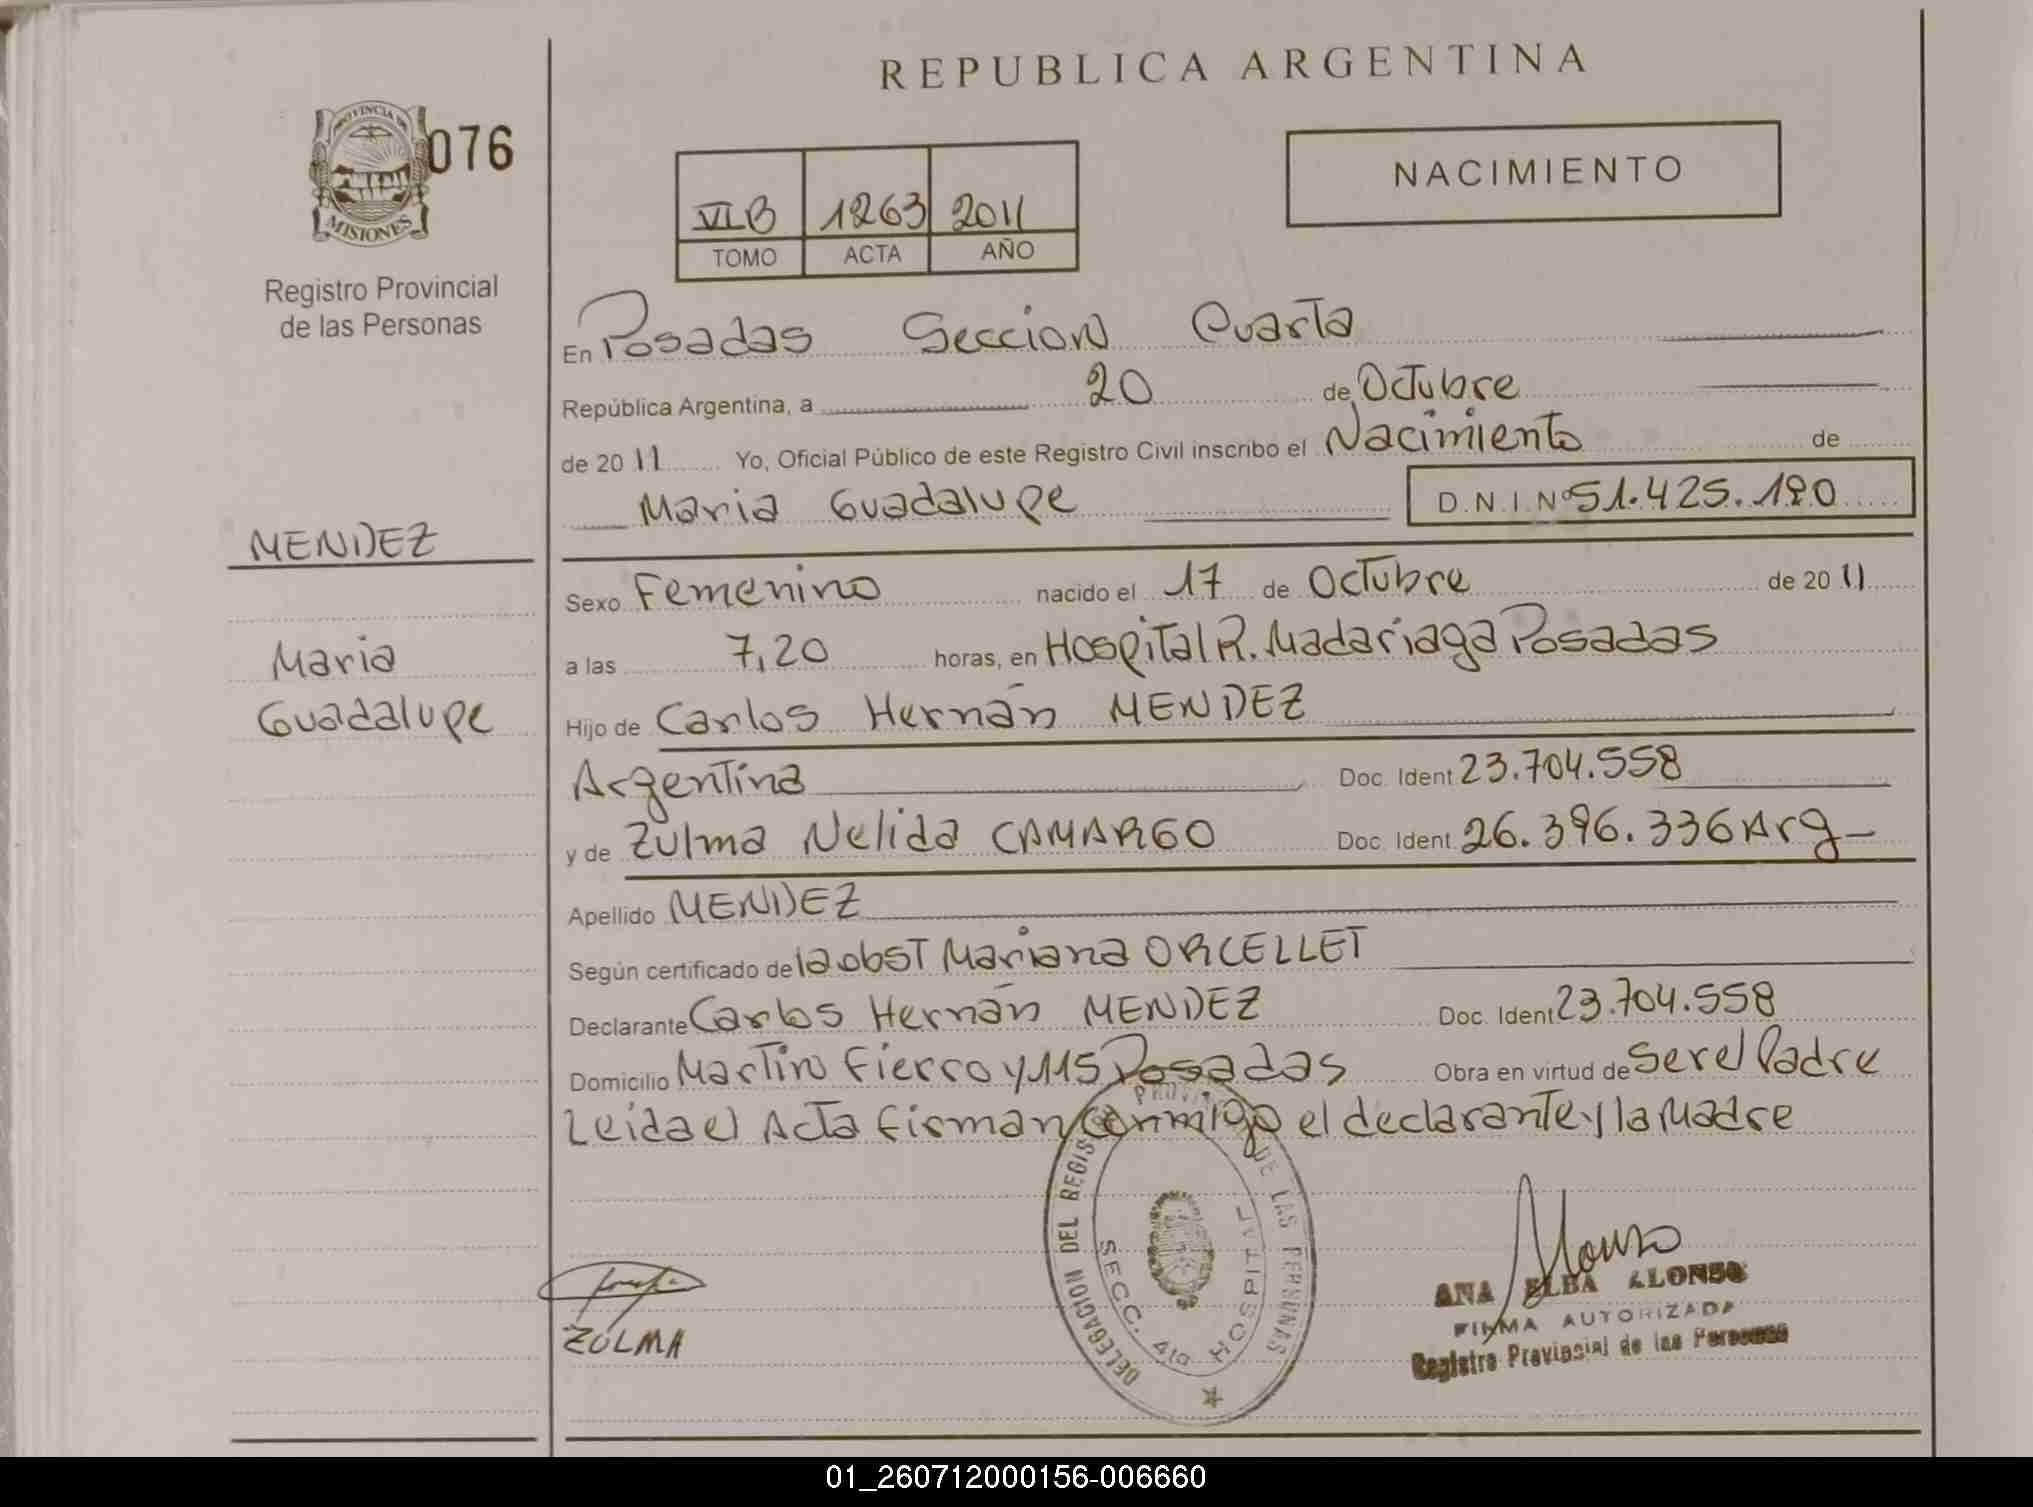 REPUBLICA ARGENTINA
PROVINCIA DE
MISIONES
076
Registro Provincial
de las Personas
VI B 1263 2011
TOMO ACTA AÑO
NACIMIENTO
En Posadas Seccion Cuarta
República Argentina, a 20 de Octubre
de 2011 Yo, Oficial Público de este Registro Civil inscribo el Nacimiento de
Maria Guadalupe D.N.I. Nº 51.425.190
MENDEZ
Maria
Guadalupe
Sexo Femenino nacido el 17 de Octubre de 2011
a las 7,20 horas, en Hospital R. Madariaga Posadas
Hijo de Carlos Hernán MENDEZ
Argentina Doc. Ident 23.704.558
y de Zulma Nelida CAMARGO Doc. Ident. 26.396.336 Arg
Apellido MENDEZ
Según certificado de la obst Mariana ORCELLET
Declarante Carlos Hernán MENDEZ Doc. Ident 23.704.558
Domicilio Martin Fierro y 115 Posadas Obra en virtud de Ser el Padre
Leida el Acta firman conmigo el declarante y la Madre
DELEGACION DEL REGIS DE LAS PERSONAS
SECC. 4ta HOSPITAL
ZULMA
Alonso
ANA ELBA ALONSO
FIRMA AUTORIZADA
Registro Provincial de las Personas
01_260712000156-006660